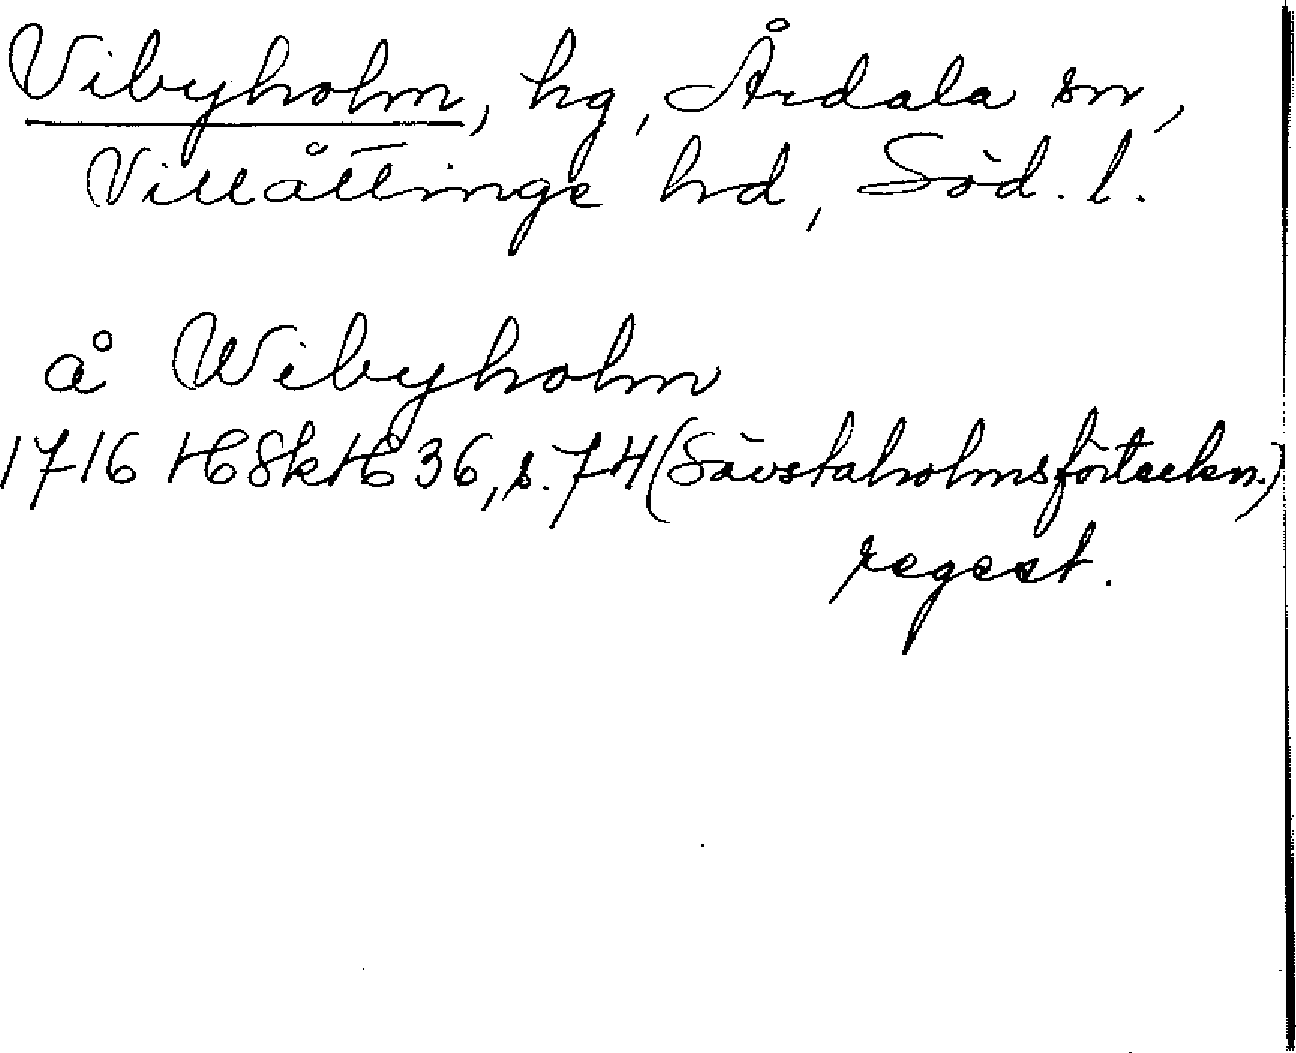 Vibyholm, hg, Årdala sn,
Villåttinge hd, Söd. l.
å Wibyholm
1716 HSkH 36, s. 74 (Sävstaholmsförteckn.)
regest.